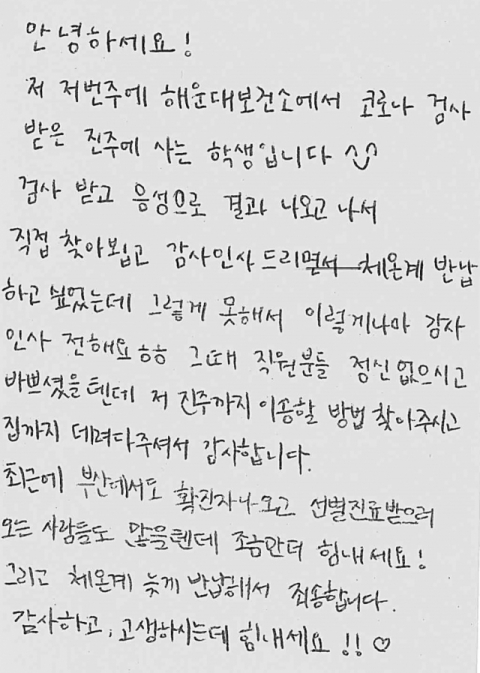 안녕하세요!
저 저번주에 해운대보건소에서 코로나 검사
받은 진주에 사는 학생입니다
검사 받고 음성으로 결과 나오고 나서
직접 찾아뵙고 감사인사 드리면서 체온계 반납
하고 싶었는데 그렇게 못해서 이렇게나마 감사
인사 전해요 ㅎㅎ 그때 직원분들 정신 없으시고
바쁘셨을 텐데 저 진주까지 이송할 방법 찾아주시고
집까지 데려다주셔서 감사합니다.
최근에 부산에서도 확진자 나오고 선별진료받으러
오는 사람들도 많을텐데 조금만더 힘내세요!
그리고 체온계 늦게 반납해서 죄송합니다.
감사하고, 고생하시는데 힘내세요!! ♡